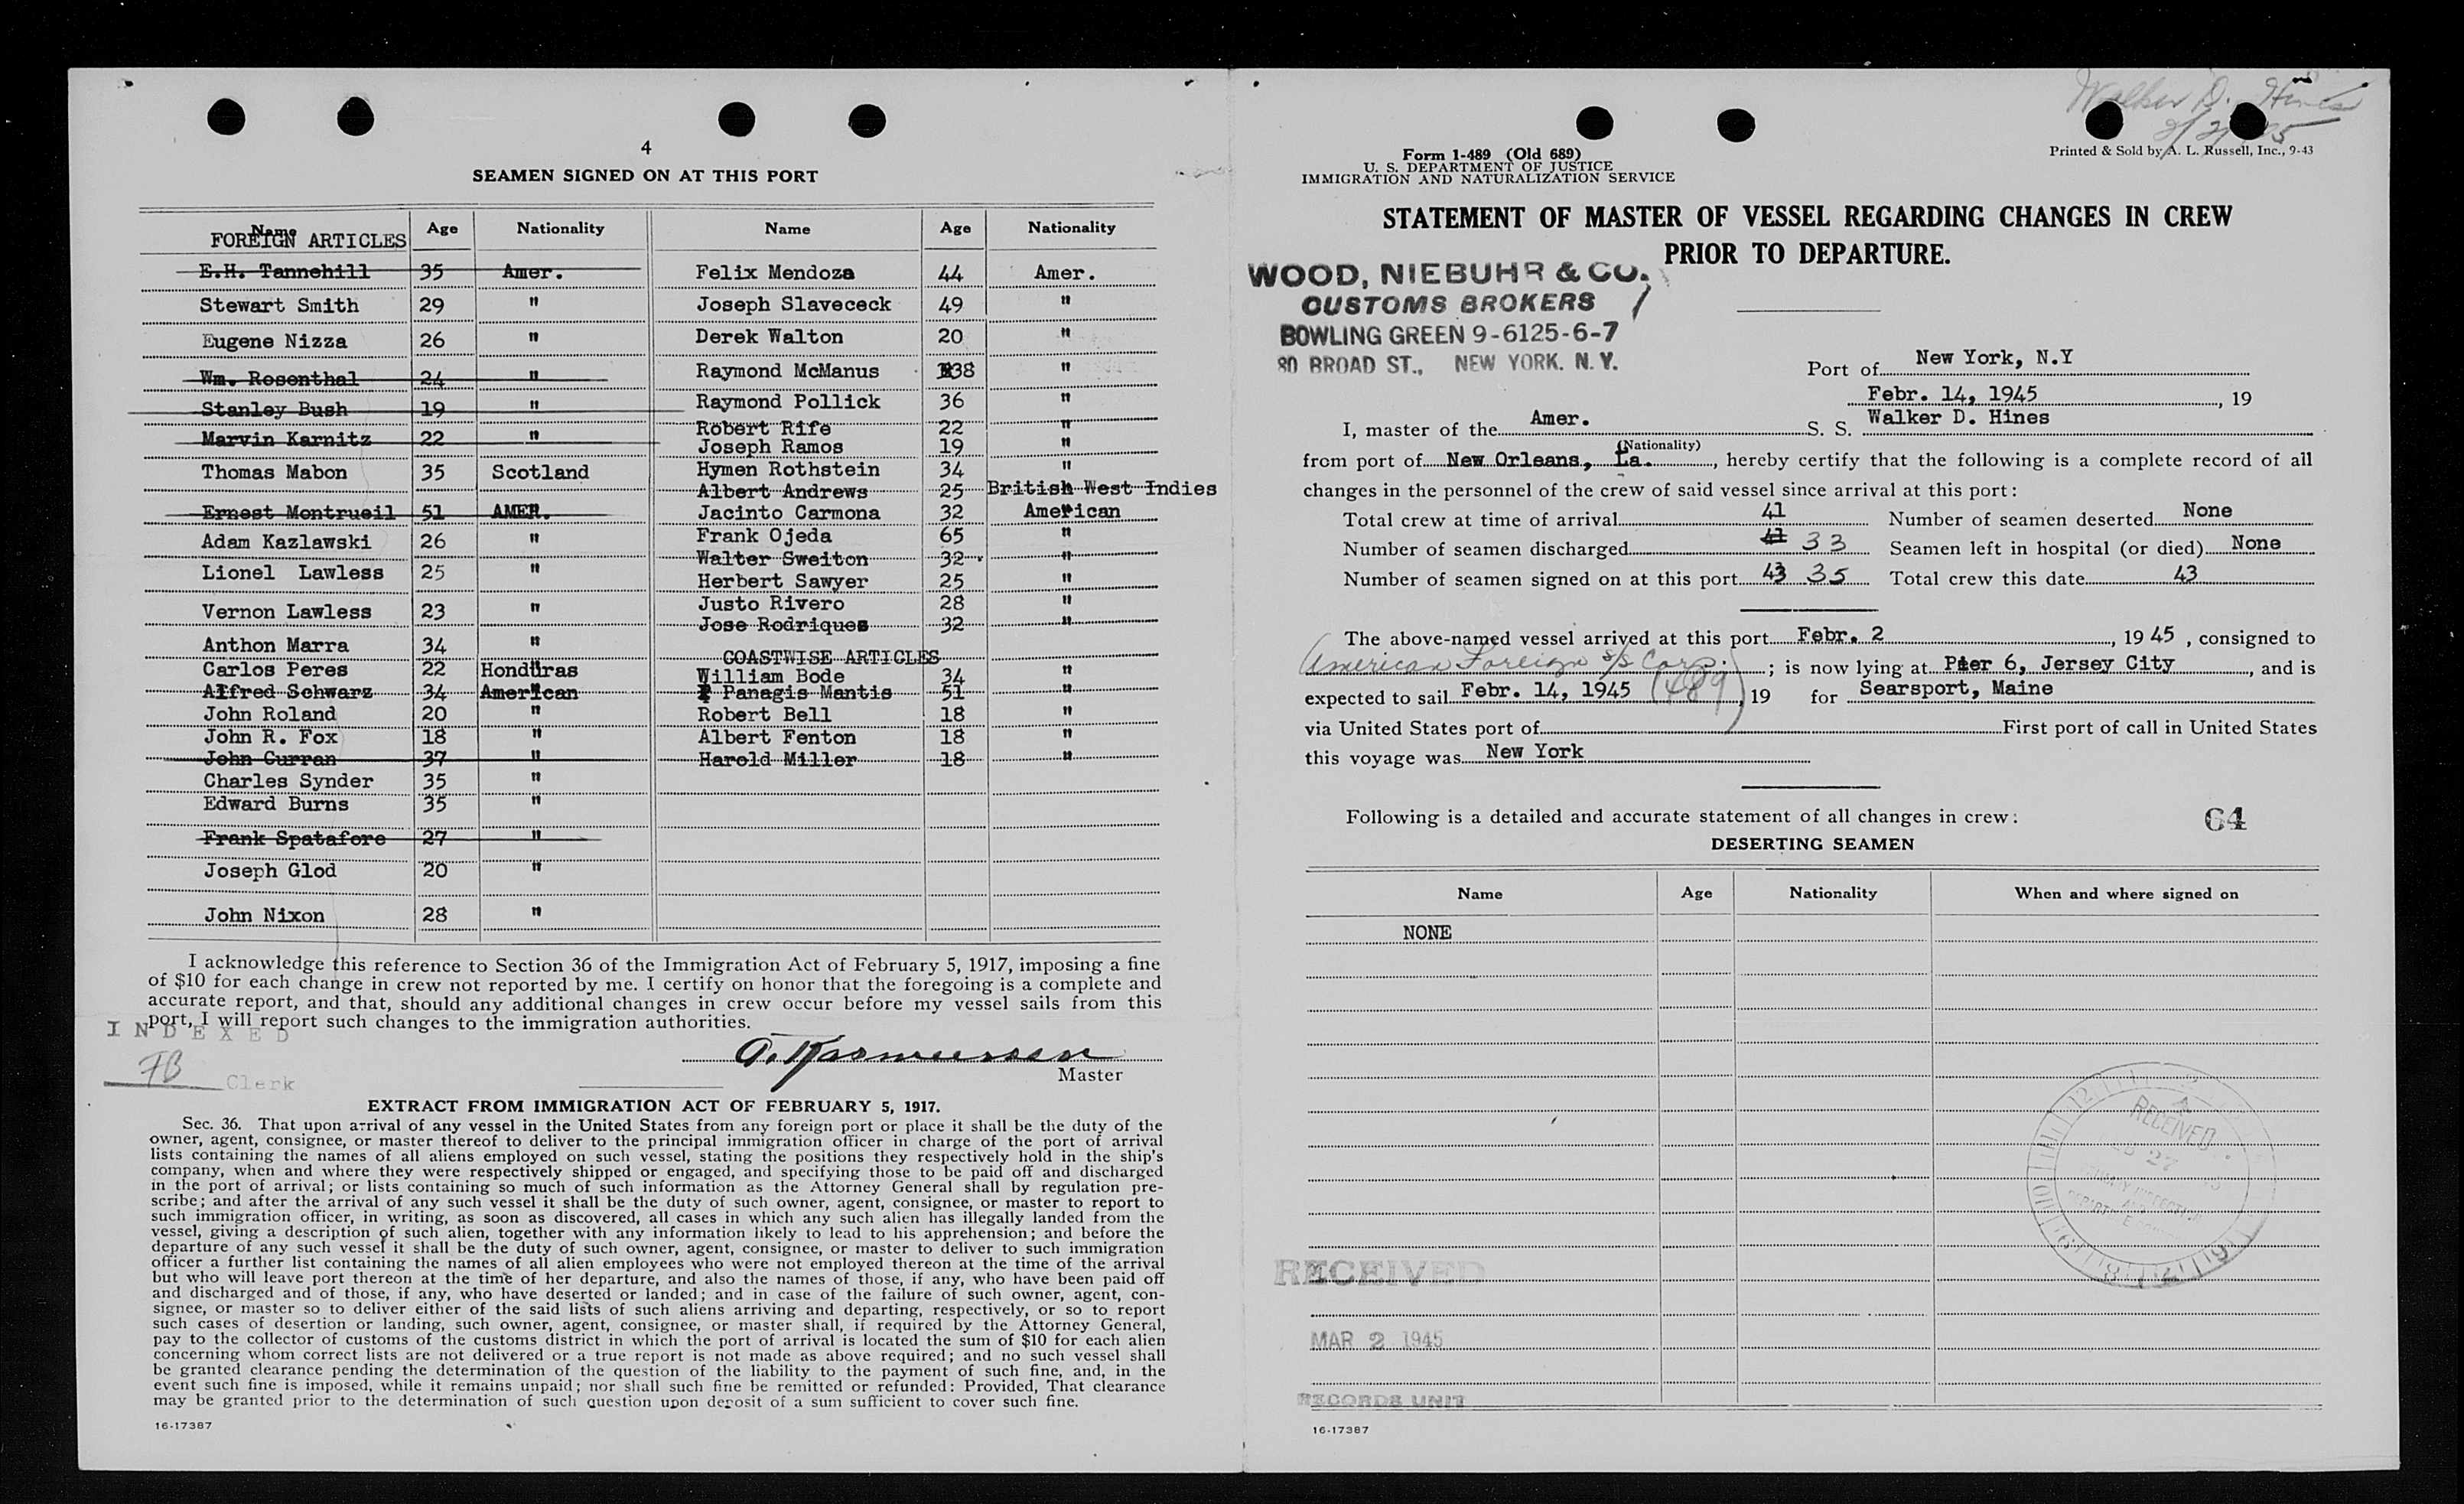 4
SEAMEN SIGNED ON AT THIS PORT
Name Age Nationality Name Age Nationality
FOREIGN ARTICLES
E.H. Tannehill 35 Amer.
Stewart Smith 29 "
Eugene Nizza 26 "
Wm. Rosenthal 24 "
Stanley Bush 19 "
Marvin Karnitz 22 "
Thomas Mabon 35 Scotland
Ernest Montrueil 51 AMER.
Adam Kazlawski 26 "
Lionel Lawless 25 "
Vernon Lawless 23 "
Anthon Marra 34 "
Carlos Peres 22 Honduras
Alfred Schwarz 34 American
John Roland 20 "
John R. Fox 18 "
John Curran 37 "
Charles Synder 35 "
Edward Burns 35 "
Frank Spatafore 27 "
Joseph Glod 20 "
John Nixon 28 "
Felix Mendoza 44 Amer.
Joseph Slavececk 49 "
Derek Walton 20 "
Raymond McManus 38 "
Raymond Pollick 36 "
Robert Rife 22 "
Joseph Ramos 19 "
Hymen Rothstein 34 "
Albert Andrews 25 British West Indies
Jacinto Carmona 32 American
Frank Ojeda 65 "
Walter Sweiton 32 "
Herbert Sawyer 25 "
Justo Rivero 28 "
Jose Rodriques 32 "
COASTWISE ARTICLES
William Bode 34 "
Panagis Mantis 51 "
Robert Bell 18 "
Albert Fenton 18 "
Harold Miller 18 "
I acknowledge this reference to Section 36 of the Immigration Act of February 5, 1917, imposing a fine
of $10 for each change in crew not reported by me. I certify on honor that the foregoing is a complete and
accurate report, and that, should any additional changes in crew occur before my vessel sails from this
port, I will report such changes to the immigration authorities.
INDEXED
FB Clerk
O. Rasmussen
Master
EXTRACT FROM IMMIGRATION ACT OF FEBRUARY 5, 1917.
Sec. 36. That upon arrival of any vessel in the United States from any foreign port or place it shall be the duty of the
owner, agent, consignee, or master thereof to deliver to the principal immigration officer in charge of the port of arrival
lists containing the names of all aliens employed on such vessel, stating the positions they respectively hold in the ship's
company, when and where they were respectively shipped or engaged, and specifying those to be paid off and discharged
in the port of arrival; or lists containing so much of such information as the Attorney General shall by regulation pre-
scribe; and after the arrival of any such vessel it shall be the duty of such owner, agent, consignee, or master to report to
such immigration officer, in writing, as soon as discovered, all cases in which any such alien has illegally landed from the
vessel, giving a description of such alien, together with any information likely to lead to his apprehension; and before the
departure of any such vessel it shall be the duty of such owner, agent, consignee, or master to deliver to such immigration
officer a further list containing the names of all alien employees who were not employed thereon at the time of the arrival
but who will leave port thereon at the time of her departure, and also the names of those, if any, who have been paid off
and discharged and of those, if any, who have deserted or landed; and in case of the failure of such owner, agent, con-
signee, or master so to deliver either of the said lists of such aliens arriving and departing, respectively, or so to report
such cases of desertion or landing, such owner, agent, consignee, or master shall, if required by the Attorney General,
pay to the collector of customs of the customs district in which the port of arrival is located the sum of $10 for each alien
concerning whom correct lists are not delivered or a true report is not made as above required; and no such vessel shall
be granted clearance pending the determination of the question of the liability to the payment of such fine, and, in the
event such fine is imposed, while it remains unpaid; nor shall such fine be remitted or refunded: Provided, That clearance
may be granted prior to the determination of such question upon deposit of a sum sufficient to cover such fine.
16-17387
Walker D. Hines
Form 1-489 (Old 689)
U. S. DEPARTMENT OF JUSTICE
IMMIGRATION AND NATURALIZATION SERVICE
Printed & Sold by A. L. Russell, Inc., 9-43
STATEMENT OF MASTER OF VESSEL REGARDING CHANGES IN CREW
PRIOR TO DEPARTURE.
WOOD, NIEBUHR & CO.
CUSTOMS BROKERS
BOWLING GREEN 9-6125-6-7
80 BROAD ST., NEW YORK. N. Y.
Port of New York, N.Y
Febr. 14, 1945, 19
I, master of the Amer. S. S. Walker D. Hines
(Nationality)
from port of New Orleans, La., hereby certify that the following is a complete record of all
changes in the personnel of the crew of said vessel since arrival at this port:
Total crew at time of arrival 41 Number of seamen deserted None
Number of seamen discharged 41 33 Seamen left in hospital (or died) None
Number of seamen signed on at this port 43 35 Total crew this date 43
The above-named vessel arrived at this port Febr. 2, 1945, consigned to
American Foreign s/s Corp.; is now lying at Pier 6, Jersey City, and is
expected to sail Febr. 14, 1945 (489), 19 for Searsport, Maine
via United States port of First port of call in United States
this voyage was New York
Following is a detailed and accurate statement of all changes in crew:
64
DESERTING SEAMEN
Name Age Nationality When and where signed on
NONE
RECEIVED
FEB 27
RECEIVED
MAR 2 1945
RECORDS UNIT
16-17387